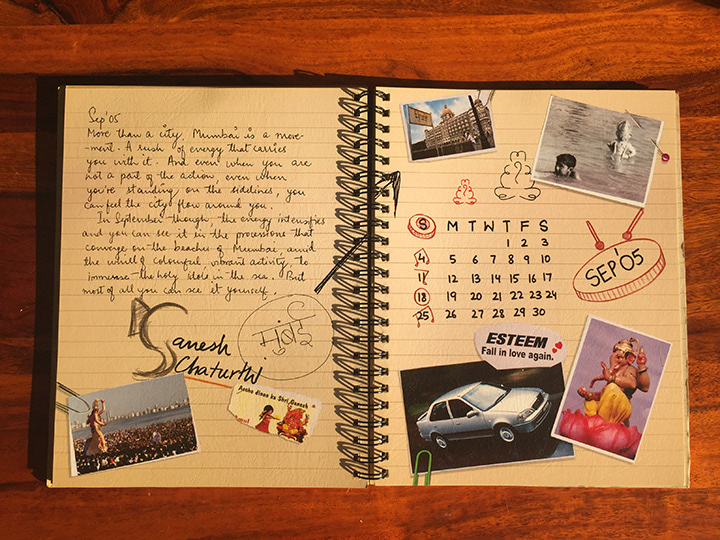 Sep'05
More than a city, Mumbai is a move-
-ment. A rush of energy that carries
you with it. And even when you are
not a part of the action, even when
you're standing on the sidelines, you
can feel the city flow around you.
In September though, the energy intensifies
and you can see it in the processions that
converge on the beaches of Mumbai, amid
the whirl of colourful, vibrant activity, to
immerse the holy idols in the sea. But
most of all you can see it yourself.
Ganesh
Chaturthi
मुंबई
Aashu dinon ka Shri Ganesh
S M T W T F S
1 2 3
4 5 6 7 8 9 10
11 12 13 14 15 16 17
18 19 20 21 22 23 24
25 26 27 28 29 30
SEP'05
ESTEEM
Fall in love again.